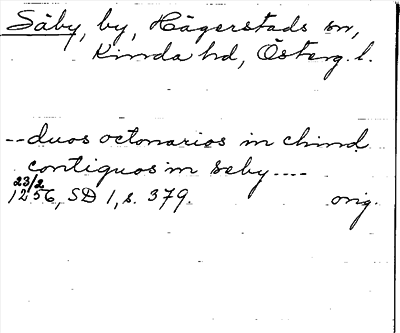 Säby, by, Hägerstads sn,
Kinda hd, Österg. l.
-- duos octonarios in chind
contiguos in seby ----
23/2
1256, SD 1, s. 379. orig.